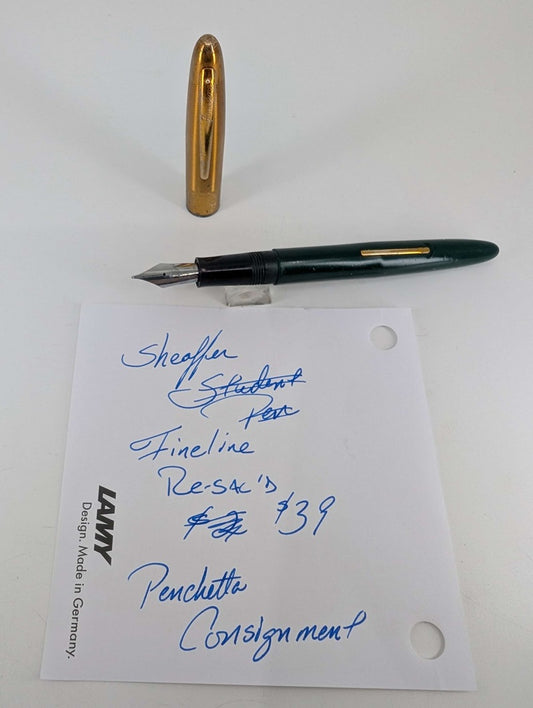 Sheaffer
Student
Pen
Fineline
Re-sac'd
$39
Penchetta
Consignment
LAMY
Design. Made in Germany.